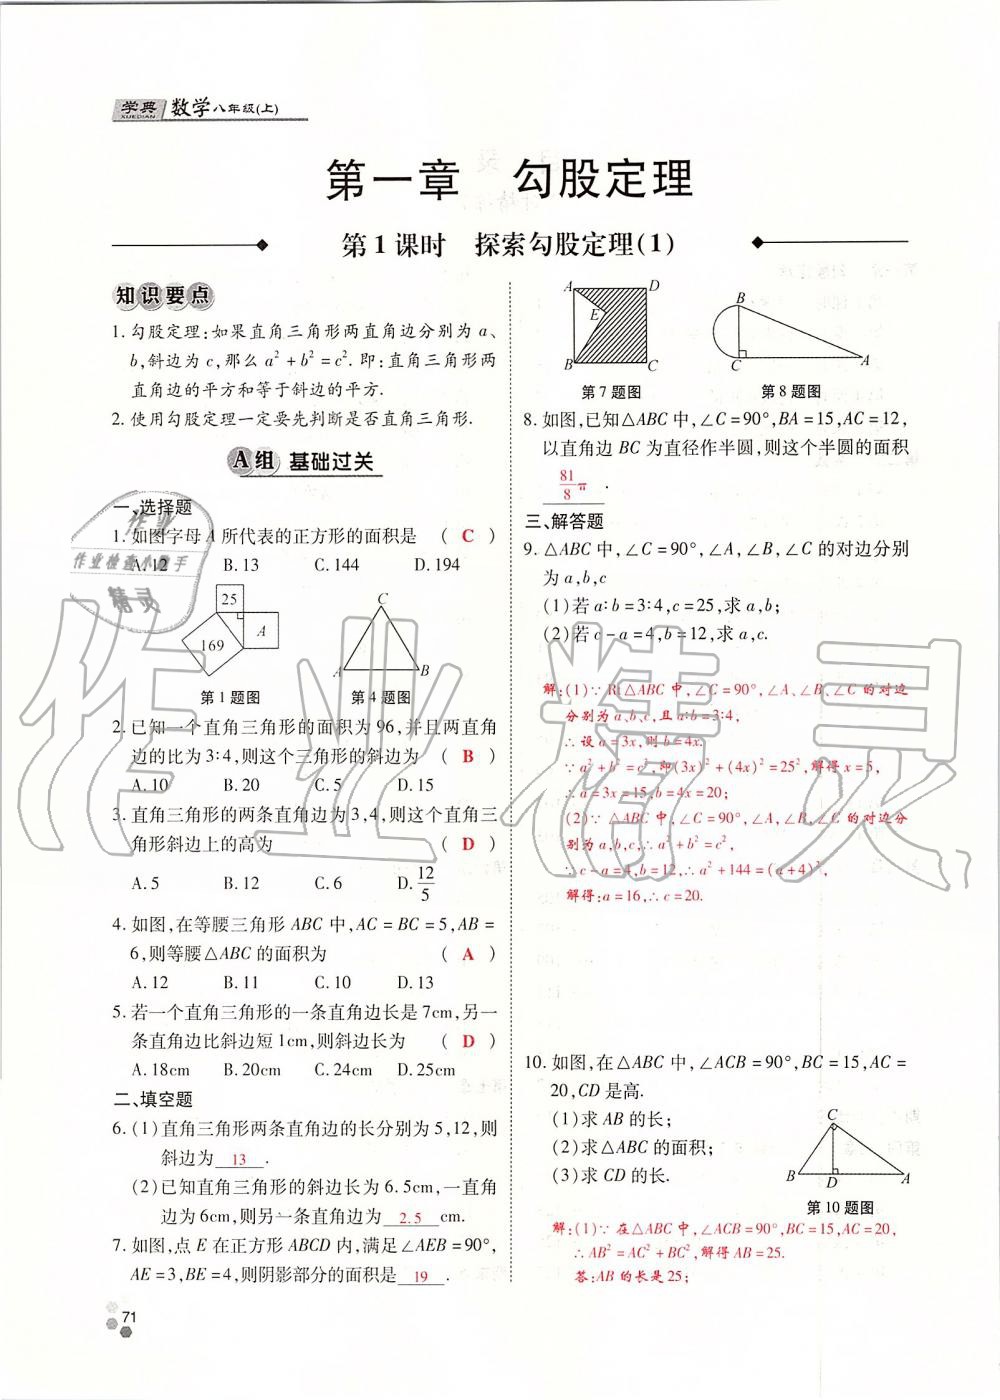 学典 数学八年级(上)
XUEDIAN
第一章 勾股定理
第1课时 探索勾股定理(1)
知识要点
1. 勾股定理:如果直角三角形两直角边分别为 a、
b,斜边为 c,那么 a²+b²=c². 即:直角三角形两
直角边的平方和等于斜边的平方.
2. 使用勾股定理一定要先判断是否直角三角形.
A组 基础过关
一、选择题
1. 如图字母 A 所代表的正方形的面积是 ( C )
A. 12 B. 13 C. 144 D. 194
25
A
169
C
A B
第1题图 第4题图
2. 已知一个直角三角形的面积为 96,并且两直角
边的比为 3∶4,则这个三角形的斜边为 ( B )
A. 10 B. 20 C. 5 D. 15
3. 直角三角形的两条直角边为 3,4,则这个直角三
角形斜边上的高为 ( D )
A. 5 B. 12 C. 6 D. 12/5
4. 如图,在等腰三角形 ABC 中,AC=BC=5,AB=
6,则等腰△ABC 的面积为 ( A )
A. 12 B. 11 C. 10 D. 13
5. 若一个直角三角形的一条直角边长是 7cm,另一
条直角边比斜边短 1cm,则斜边长为 ( D )
A. 18cm B. 20cm C. 24cm D. 25cm
二、填空题
6. (1)直角三角形两条直角边的长分别为 5,12,则
斜边为 13 .
(2)已知直角三角形的斜边长为 6.5cm,一直角
边为 6cm,则另一条直角边为 2.5 cm.
7. 如图,点 E 在正方形 ABCD 内,满足∠AEB=90°,
AE=3,BE=4,则阴影部分的面积是 19 .
71
A D
E
B C
第7题图
B
C A
第8题图
8. 如图,已知△ABC 中,∠C=90°,BA=15,AC=12,
以直角边 BC 为直径作半圆,则这个半圆的面积
81/8 π .
三、解答题
9. △ABC 中,∠C=90°,∠A,∠B,∠C 的对边分别
为 a,b,c
(1)若 a∶b=3∶4,c=25,求 a,b;
(2)若 c-a=4,b=12,求 a,c.
解:(1)∵ Rt△ABC 中,∠C=90°,∠A、∠B、∠C 的对边
分别为 a、b、c,且 a∶b=3∶4,
∴ 设 a=3x,则 b=4x.
∵ a²+b²=c²,即(3x)²+(4x)²=25²,解得 x=5,
∴ a=3x=15,b=4x=20;
(2)∵ △ABC 中,∠C=90°,∠A,∠B,∠C 的对边分
别为 a,b,c,∴ a²+b²=c²,
∵ c-a=4,b=12,∴ a²+144=(a+4)²,
解得:a=16,∴ c=20.
10. 如图,在△ABC 中,∠ACB=90°,BC=15,AC=
20,CD 是高.
(1)求 AB 的长;
(2)求△ABC 的面积;
(3)求 CD 的长.
C
B D A
第10题图
解:(1)∵ 在△ABC 中,∠ACB=90°,BC=15,AC=20,
∴ AB²=AC²+BC²,解得 AB=25.
答:AB 的长是 25;
作业
作业检查小助手
精灵
作业精灵